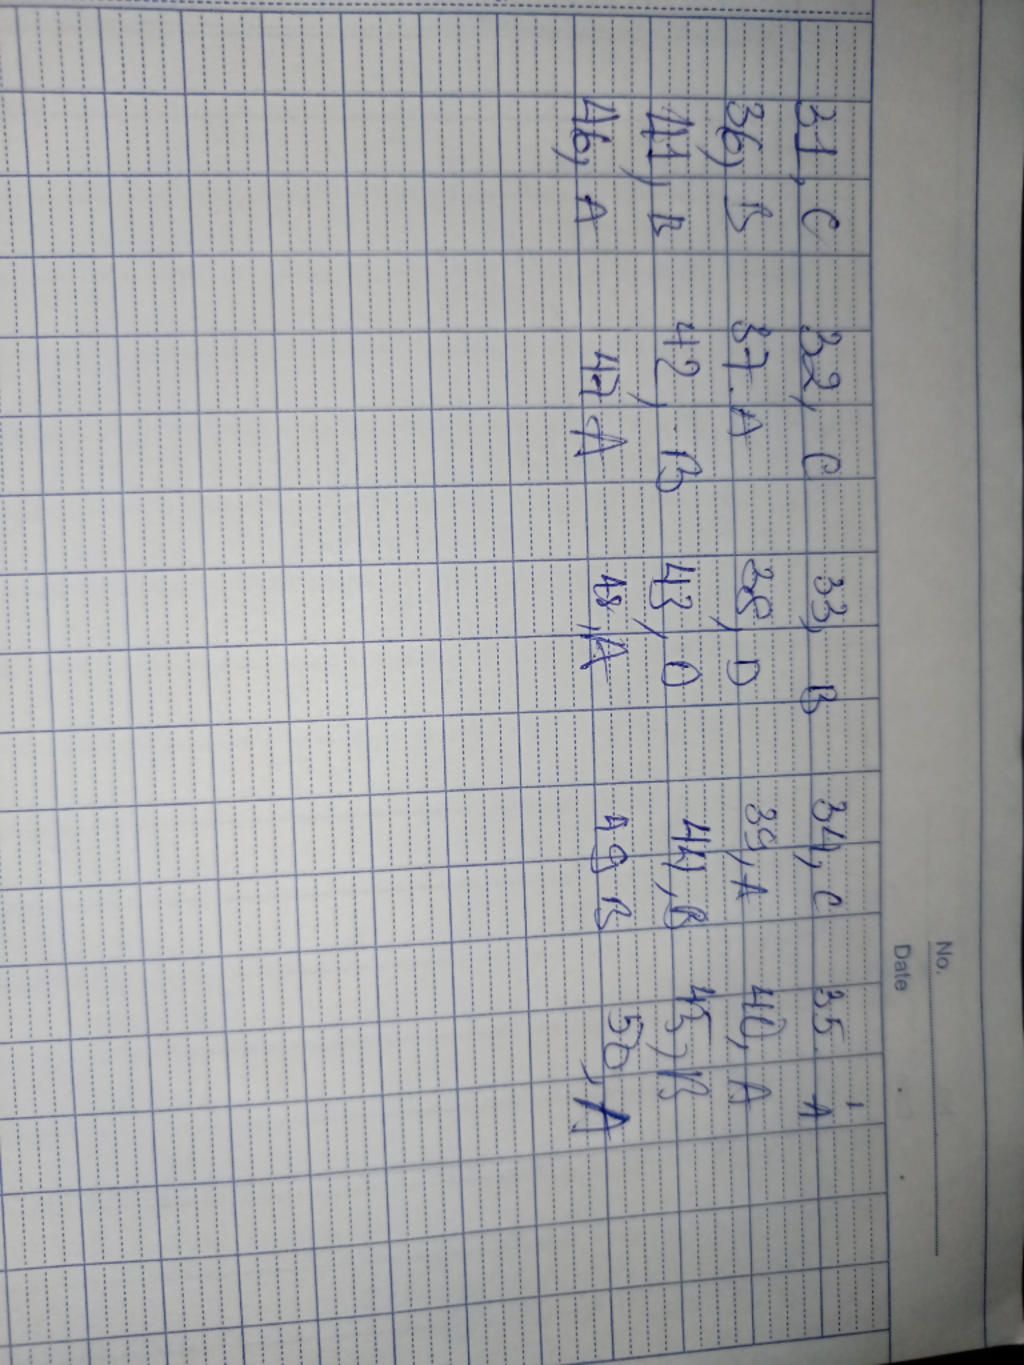 No.
Date
31, C 32, C 33, B 34, C 35. A
36, B 37. A 38, D 39, A 40, A
41, B 42, B 43, D 44, B 45, B
46, A 47 A 48, A 49 B 50, A